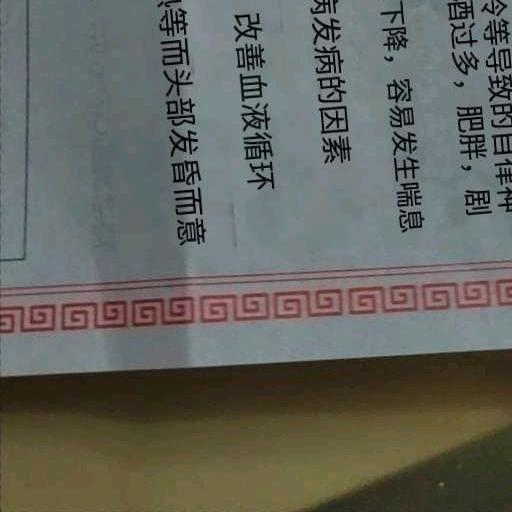 冷等导致的自律神
酒过多，肥胖，剧
下降，容易发生喘息
病发病的因素
改善血液循环
等而头部发昏而意